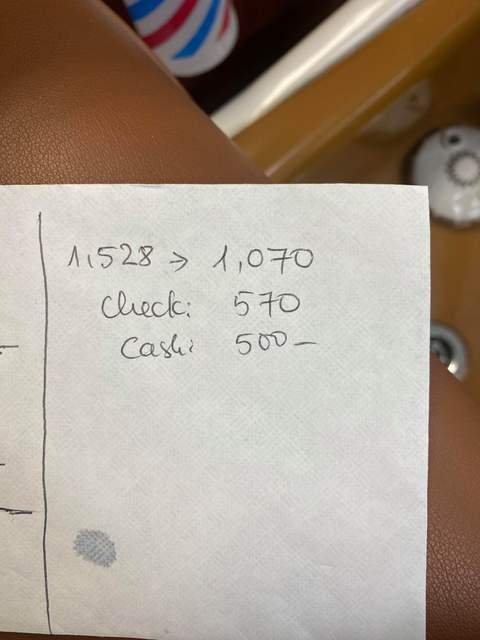 1,528 → 1,070
check: 570
cash: 500—